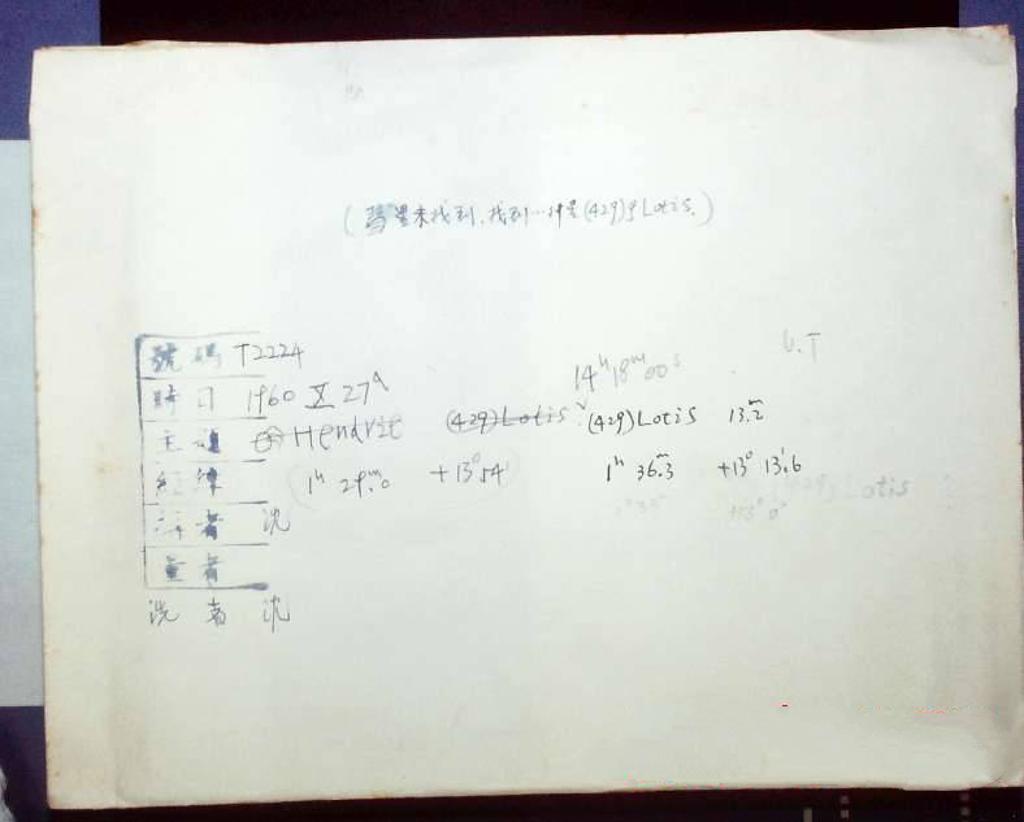 (彗星未找到,找到…(429)Lotis.)
U.T
號碼 T2224 14ʰ18ᵐ00ˢ
時日 1960 X 27ᵈ
主 Hendrie (429)Lotis (429)Lotis 13.2ᵐ
經緯 1ʰ 29.ᵐ0 +13°54' 1ʰ 36.ᵐ3 +13° 13.'6
Lotis
者 沈
量者
洗者 沈